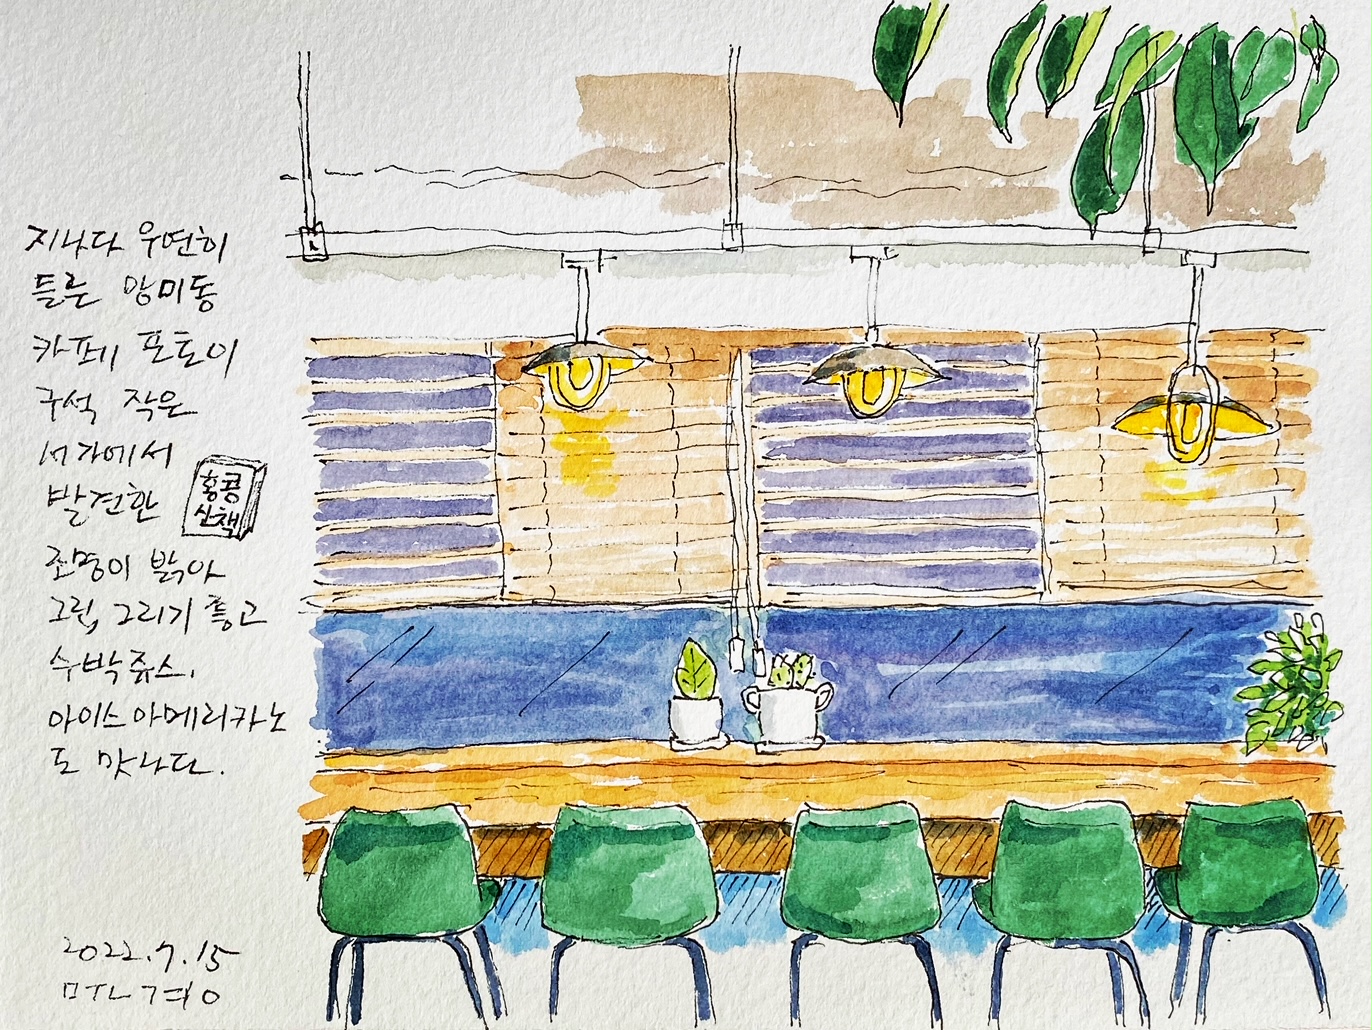 지나다 우연히
들른 망미동
카페 포토이
구석 작은
서가에서
발견한
홍콩
산책
조명이 밝아
그림, 그리기 좋고
수박쥬스,
아이스아메리카노
도 맛나다.
2022.7.15